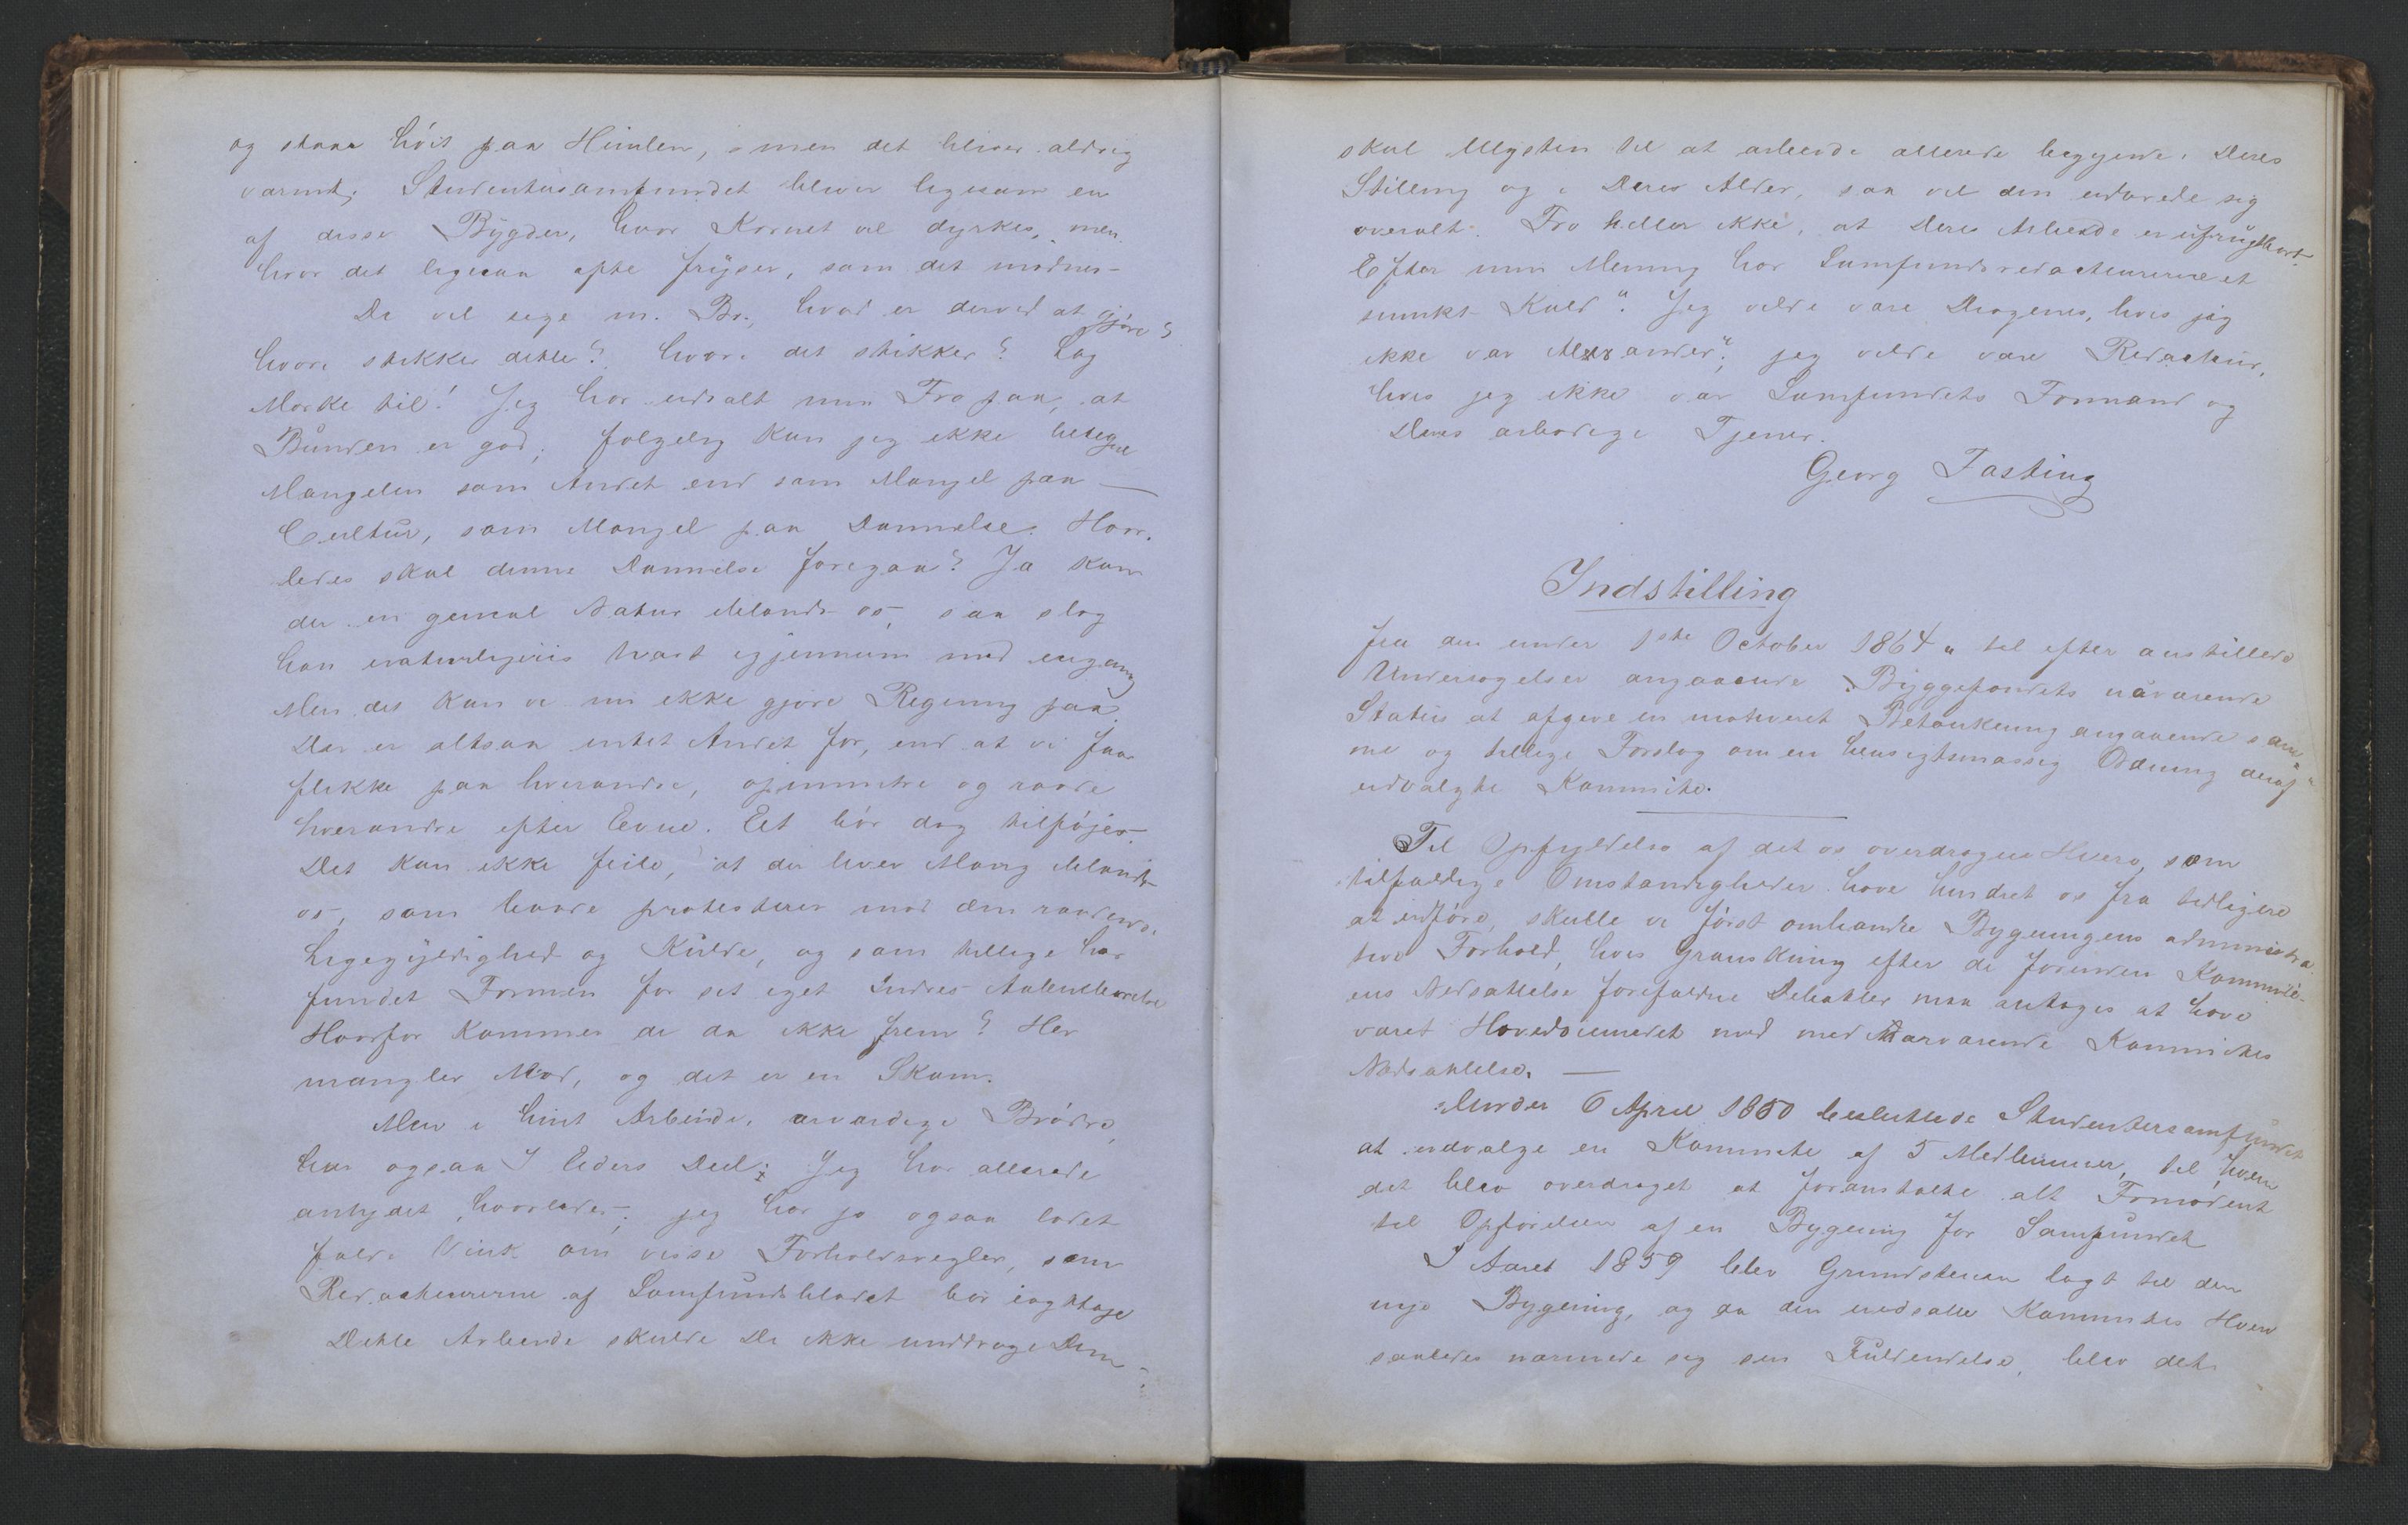 og staar høit paa Himlen, men det bliver aldrig
varmt; Studentersamfundet bliver ligesom en
af disse Bygder, hvor Kornet vel dyrkes, men
hvor det ligesaa ofte fryser, som det modnes-
De vil sige m. Br., hvad er derved at gjøre?
hvori stikker dette? hvori det stikker? Læg
Mærke til! Jeg har udtalt min Tro paa, at
Bunden er god; følgelig kan jeg ikke betegne
Mangelen som Andet end som Mangel paa —
Cultur, som Mangel paa Dannelse. Hvor-
ledes skal denne Dannelse foregaa? Ja kom
der en genial Natur iblandt os, saa slog
han naturligviis tvært igjennem med engang
Men det kan vi nu ikke gjøre Regning paa
Der er altsaa intet Andet for, end at vi faar
flikke paa hverandre, opmuntre og raade
hverandre efter Evne. Eet bør dog tilføjes-
Det kan ikke feile, at der lever Mang iblandt
os, som baade protesterer mod den raadende
Ligegyldighed og Kulde, og som tillige har
fundet Formen for sit eget Indres Aabenbarelse
Hvorfor kommer de da ikke frem? Her
mangler Mod, og det er en Skam.
Men i hint Arbeide, ærværdige Brødre,
har ogsaa I Eders Deel; Jeg har allerede
antydet, hvorledes-; jeg har jo ogsaa ladet
falde Vink om visse Forholdsregler, som
Redacteurerne af Samfundsbladet bør iagttage
Dette Arbeide skulde De ikke unddrage Dem-;
skal Ulysten til at arbeide allerede begynde i Deres
Stilling og i Deres Alder, saa vil den udbrede sig
overalt. Tro heller ikke, at Deres Arbeide er ufrugtbart-
Efter min Mening har Samfundsredacteurerne et
smukt Kald". Jeg vilde være Diogenes, hvis jeg
ikke var Alexander"; jeg vilde være Redacteur,
hvis jeg ikke var Samfundets Formand og
Deres ærbødige Tjener.
Georg Fasting
Indstilling
fra den under 1ste October 1864 „ til efter anstillede
Undersøgelser angaaende Byggefondets nuværende
Status at afgive en motiveret Betænkning angaaende sam-
me og tillige Forslag om en hensigtsmæssig Ordning deraf"
udvalgte Kommite.
Til Opfyldelse af det os overdragne Hverv, som
tilfældige Omstændigheder have hindret os fra tidligere
at udføre, skulle vi først omhandle Bygningens administra-
tive Forhold, hvis Granskning efter de forinden Kommite-
ens Nedsættelse forefaldne Debatter maa antages at have
været Hovedøiemedet med nærværende Kommites
Nedsættelse. —
Under 6 April 1850 besluttede Studentersamfundet
at udvælge en Kommite af 5 Medlemmer, til hvem
det blev overdraget at foranstalte alt Fornødent
til Opførelsen af en Bygning for Samfundet
I Aaret 1859 blev Grundstenen lagt til den
nye Bygning, og da den nedsatte Kommites Hverv
saaledes nærmede sig sin Fuldendelse, blev det